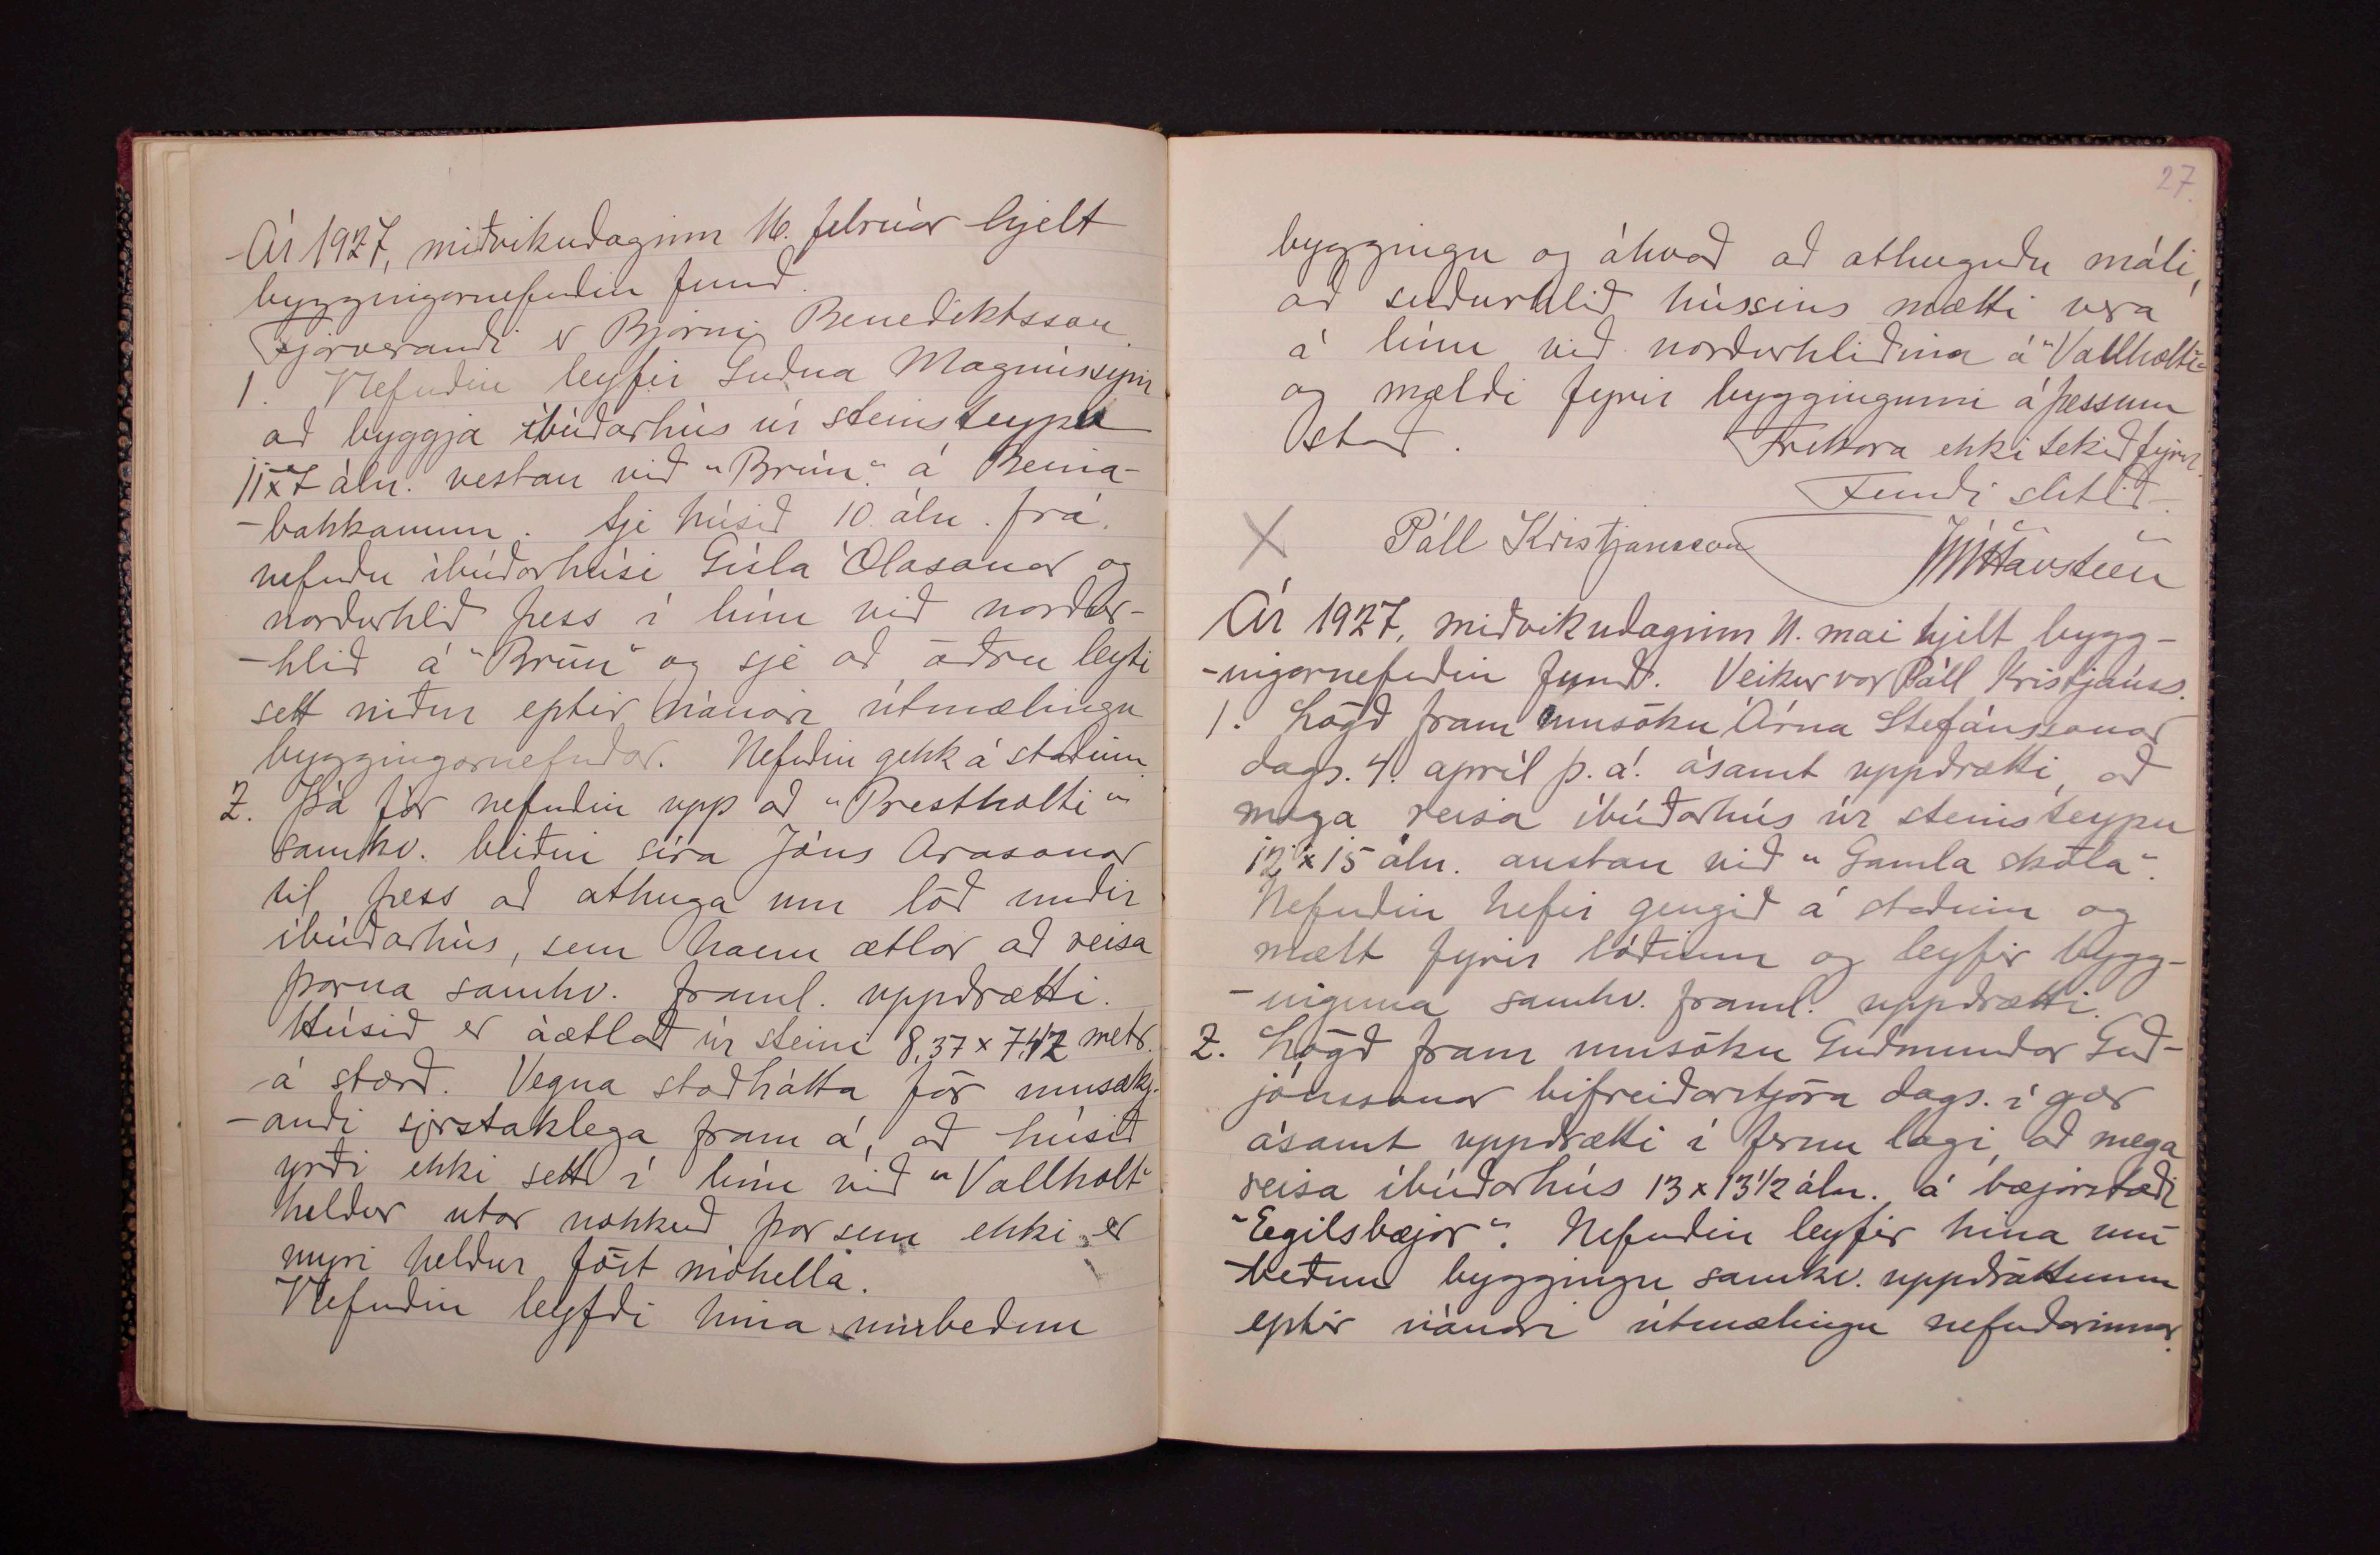 Ár 1927, miðvikudaginn 16. febrúar hjelt
byggingarnefndin fund.
Fjarverandi er Björn Benediktsson.
1. Nefndin leyfir Guðna Magnússyni
að byggja íbúðarhús úr steinsteypu
11x7 áln. vestan við "Brún" á Beina-
-bakkanum. Sje húsið 10 áln. frá
nefndu íbúðarhúsi Gísla Ólasonar og
norðurhlið þess í línu við norður-
-hlið á "Brún" og sje að öðru leyti
sett niður eptir nánari útmælingu
byggingarnefndar. Nefndin gekk á staðinn.
2. Þá fór nefndin upp að "Prestholti"
samkv. beiðni síra Jóns Arasonar
til þess að athuga um lóð undir
íbúðarhús, sem hann ætlar að reisa
þarna samkv. framl. uppdrætti.
Húsið er áætlað úr steini 8,37 x 7,42 metr.
á stærð. Vegna staðhátta fór umsækj-
-andi sjerstaklega fram á, að húsið
yrði ekki sett í línu við "Vallholt"
heldur utar nokkuð þar sem ekki er
mýri heldur föst móhella.
Nefndin leyfði hina umbeðnu
27.
byggingu og ákvað að athuguðu máli,
að suðurhlið hússins mætti vera
á línu við norðurhliðina á "Vallholti"
og mældi fyrir byggingunni á þessum
stað. Frekara ekki tekið fyrir.
Fundi slitið.
X Páll Kristjánsson JJHavsteen
Ár 1927, miðvikudaginn 11. mai hjelt bygg-
-ingarnefndin fund. Veikur var Páll Kristjánss.
1. Lögð fram umsókn Árna Stefánssonar
dags. 4. apríl þ. á. ásamt uppdrætti, að
mega reisa íbúðarhús úr steinsteypu
12 x 15 áln. austan við "Gamla skóla".
Nefndin hefir gengið á staðinn og
mælt fyrir lóðinni og leyfir bygg-
-inguna samkv. framl. uppdrætti.
2. Lögð fram umsókn Guðmundar Guð-
jónssonar bifreiðarstjóra dags. í gær
ásamt uppdrætti í fernu lagi, að mega
reisa íbúðarhús 13 x 13 1/2 áln. á bæjarstæði
"Egilsbæjar". Nefndin leyfir hina um-
-beðnu byggingu samkv. uppdráttunum
eptir nánari útmælingu nefndarinnar.